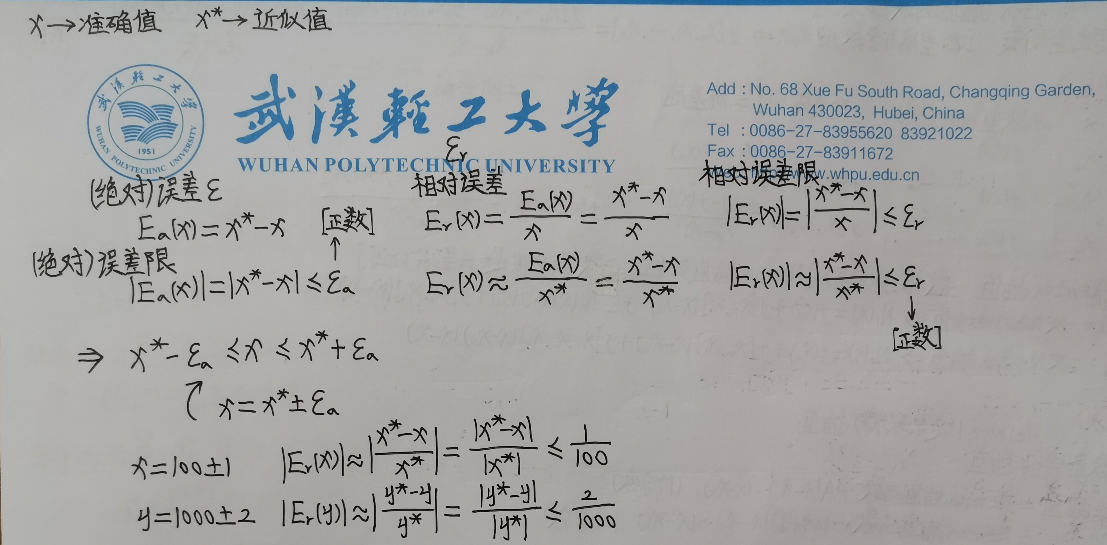 x→准确值 x*→近似值
武漢輕工大學
WUHAN POLYTECHNIC UNIVERSITY
武漢輕工大學
WUHAN POLYTECHNIC UNIVERSITY
1951
Add : No. 68 Xue Fu South Road, Changqing Garden,
Wuhan 430023, Hubei, China
Tel : 0086-27-83955620 83921022
Fax : 0086-27-83911672
whpu.edu.cn
(绝对)误差ε
Ea(x)=x*-x [正数]
(绝对)误差限
|Ea(x)|=|x*-x|≤εa
εr
相对误差
Er(x)=Ea(x)/x=(x*-x)/x
Er(x)≈Ea(x)/x*=(x*-x)/x*
相对误差限
|Er(x)|=|(x*-x)/x|≤εr
|Er(x)|≈|(x*-x)/x*|≤εr
[正数]
⇒ x*-εa≤x≤x*+εa
x=x*±εa
x=100±1 |Er(x)|≈|(x*-x)/x*|=|x*-x|/|x*|≤1/100
y=1000±2 |Er(y)|≈|(y*-y)/y*|=|y*-y|/|y*|≤2/1000